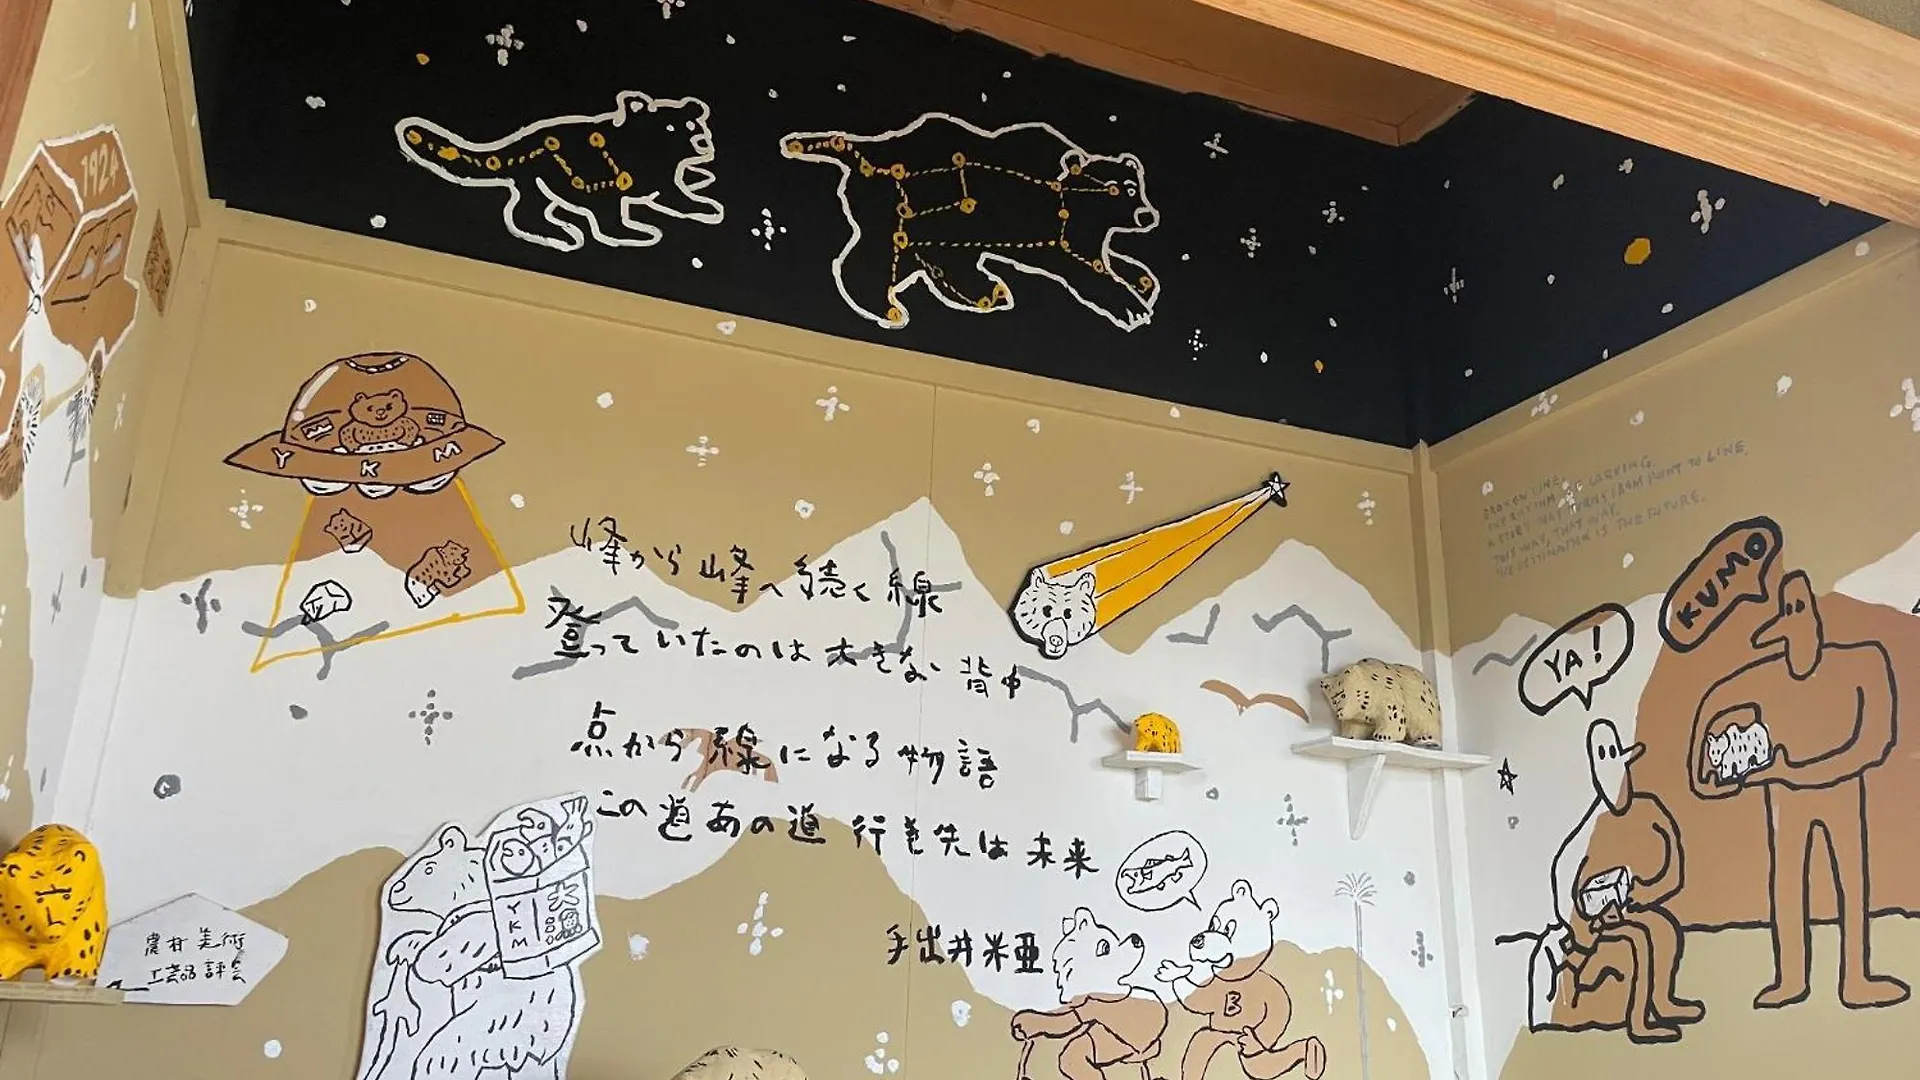 1924
Y K M
峰から峰へ続く線
登っていたのは大きな背中
点から線になる物語
この道あの道 行き先は未来
手出井米亜
BROKEN LINE,
THE RHYTHM OF CARVING.
A STORY THAT TURNS FROM POINT TO LINE,
THIS WAY, THAT WAY,
THE DESTINATION IS THE FUTURE.
KUMO
YA!
大
YKM
農村美術
工芸品評会
B